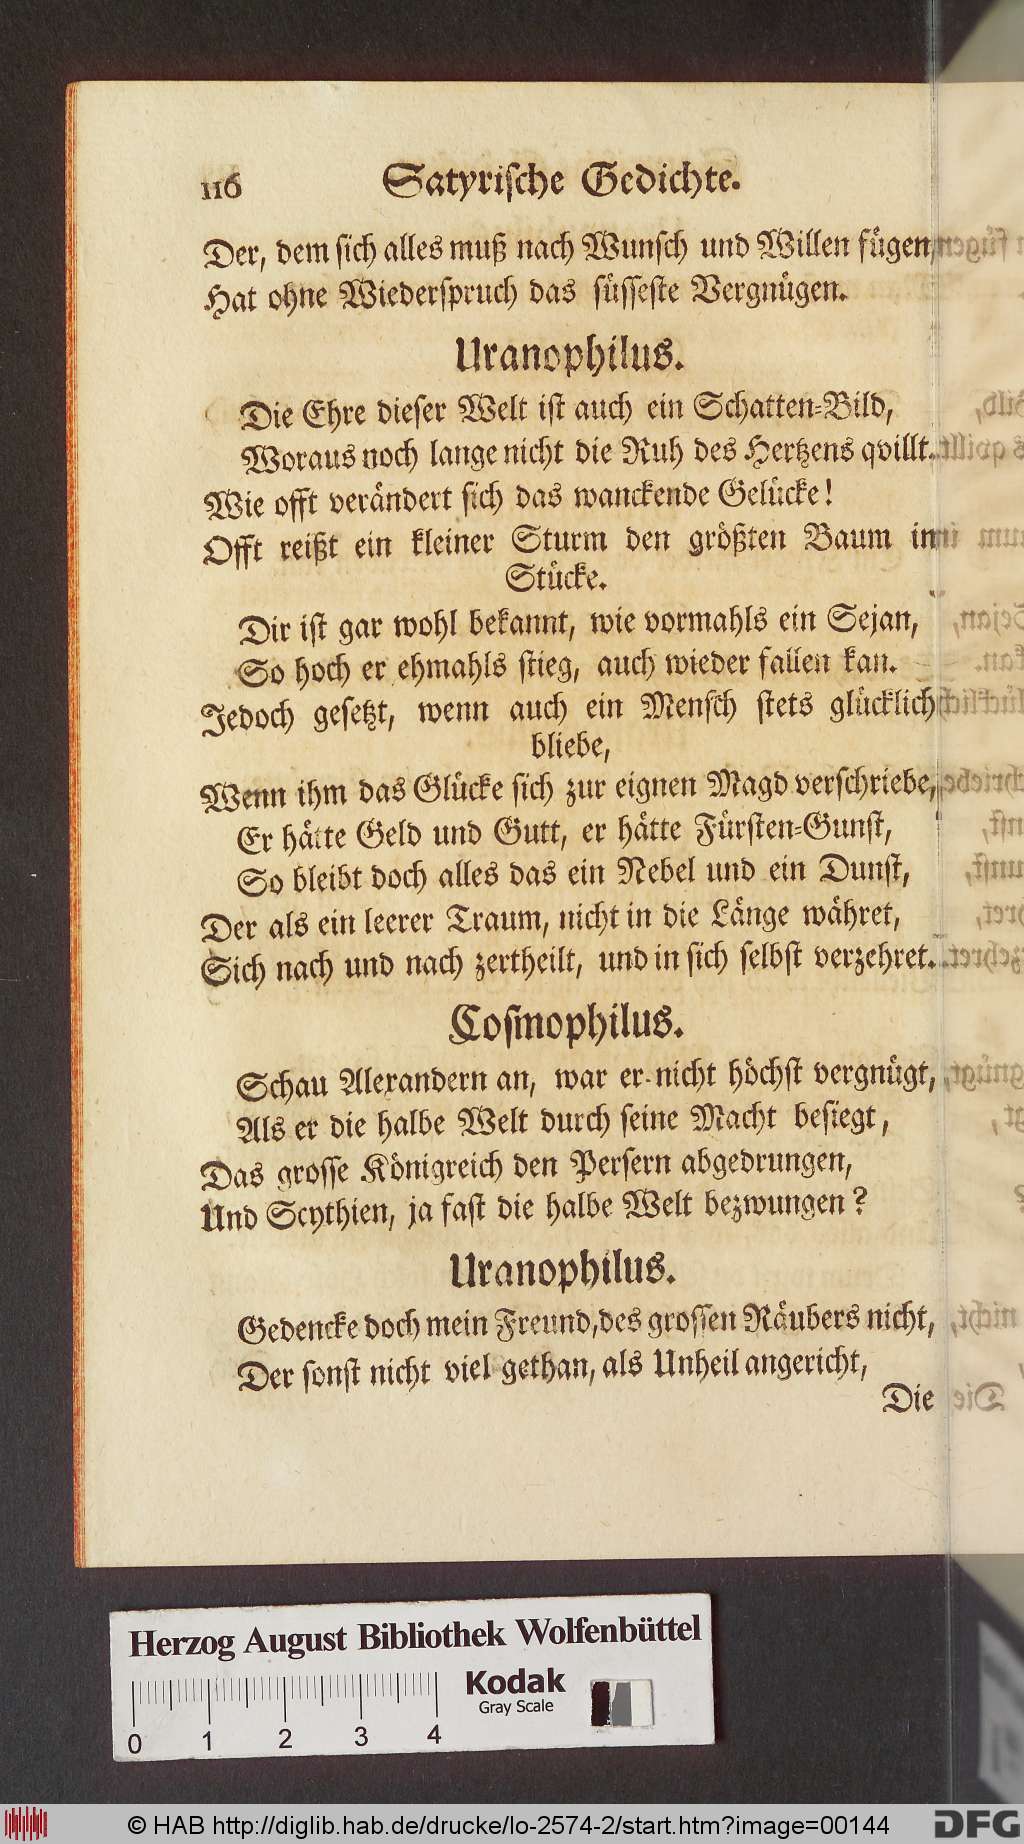 116 Satyrische Gedichte.
Der, dem sich alles muß nach Wunsch und Willen fügen,
Hat ohne Wiederspruch das süsseste Vergnügen.
Uranophilus.
Die Ehre dieser Welt ist auch ein Schatten-Bild,
Woraus noch lange nicht die Ruh des Hertzens qvillt.
Wie offt verändert sich das wanckende Gelücke!
Offt reißt ein kleiner Sturm den größten Baum in
Stücke.
Dir ist gar wohl bekannt, wie vormahls ein Sejan,
So hoch er ehmahls stieg, auch wieder fallen kan.
Jedoch gesetzt, wenn auch ein Mensch stets glücklich
bliebe,
Wenn ihm das Glücke sich zur eignen Magd verschriebe,
Er hätte Geld und Gutt, er hätte Fürsten-Gunst,
So bleibt doch alles das ein Nebel und ein Dunst,
Der als ein leerer Traum, nicht in die Länge währet,
Sich nach und nach zertheilt, und in sich selbst verzehret.
Cosmophilus.
Schau Alexandern an, war er nicht höchst vergnügt,
Als er die halbe Welt durch seine Macht besiegt,
Das grosse Königreich den Persern abgedrungen,
Und Scythien, ja fast die halbe Welt bezwungen?
Uranophilus.
Gedencke doch mein Freund, des grossen Räubers nicht,
Der sonst nicht viel gethan, als Unheil angericht,
Die
Herzog August Bibliothek Wolfenbüttel
Kodak
Gray Scale
0 1 2 3 4
© HAB http://diglib.hab.de/drucke/lo-2574-2/start.htm?image=00144
DFG